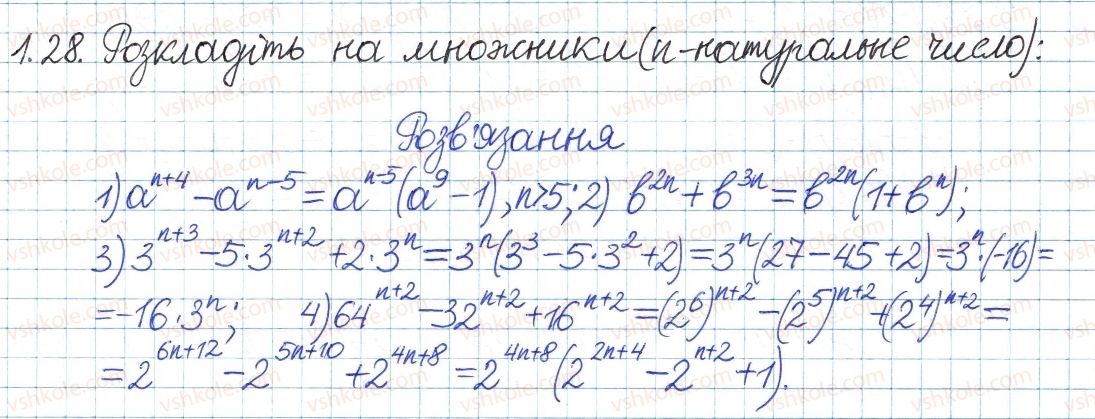 1.28. Розкладіть на множники (n-натуральне число):
Розв'язання
1) a^{n+4} - a^{n-5} = a^{n-5}(a^9 - 1), n>5; 2) b^{2n} + b^{3n} = b^{2n}(1 + b^n);
3) 3^{n+3} - 5·3^{n+2} + 2·3^n = 3^n(3^3 - 5·3^2 + 2) = 3^n(27 - 45 + 2) = 3^n·(-16) =
= -16·3^n; 4) 64^{n+2} - 32^{n+2} + 16^{n+2} = (2^6)^{n+2} - (2^5)^{n+2} + (2^4)^{n+2} =
= 2^{6n+12} - 2^{5n+10} + 2^{4n+8} = 2^{4n+8}(2^{2n+4} - 2^{n+2} + 1).